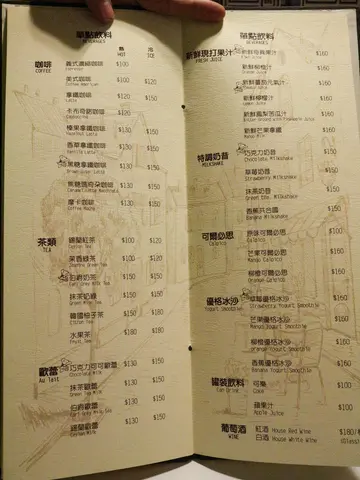 單點飲料
BEVERAGES
熱 冷
HOT ICE
咖啡 義式濃縮咖啡 $100
COFFEE Espresso
美式咖啡 $100 $120
拿鐵咖啡 $120 $150
卡布奇諾咖啡 $120
榛果拿鐵咖啡 $130 $150
Hazelnut Latte
香草拿鐵咖啡 $130 $150
Vanilla Latte
黑糖拿鐵咖啡 $130 $150
Brown Sugar Latte
焦糖瑪奇朵咖啡 $130 $150
摩卡咖啡 $130 $150
茶類 錫蘭紅茶 $100 $120
TEA Ceylon Tea
茉香綠茶 $100 $120
伯爵奶茶 $150 $150
抹茶奶綠 $150 $150
韓國柚子茶 $150 $150
水果茶 $180 $180
Fruit Tea
歐蕾 巧克力可可歐蕾 $130 $150
Au lait
抹茶歐蕾 $130 $150
伯爵歐蕾 $130 $150
錫蘭歐蕾 $130 $150
Ceylon Milk
單點飲料
BEVERAGES
新鮮現打果汁 $160
FRESH JUICE
新鮮柳橙汁 $160
$160
新鮮鳳梨苦瓜汁 $160
新鮮芒果拿鐵 $160
Mango Milk
特調奶昔 巧克力奶昔 $150
MILKSHAKE Chocolate Milkshake
草莓奶昔 $150
Strawberry Milkshake
抹茶奶昔 $150
Green Tea Milkshake
香蕉共合國 $150
Banana Milkshake
可爾必思 原味可爾必思 $100
Calpico Calpico
芒果可爾必思 $150
Mango Calpico
柳橙可爾必思 $150
Orange Calpico
優格冰沙 草莓優格冰沙 $160
Yogurt Smoothie Strawberry Yogurt Smoothie
芒果優格冰沙 $160
Mango Yogurt Smoothie
柳橙優格冰沙 $160
Orange Yogurt Smoothie
香蕉優格冰沙 $160
Banana Yogurt Smoothie
罐裝飲料 可樂 $100
Can Drink Coke
蘋果汁 $100
Apple Juice
葡萄酒 紅酒 House Red Wine $180/
WINE 白酒 House White Wine (Glass)